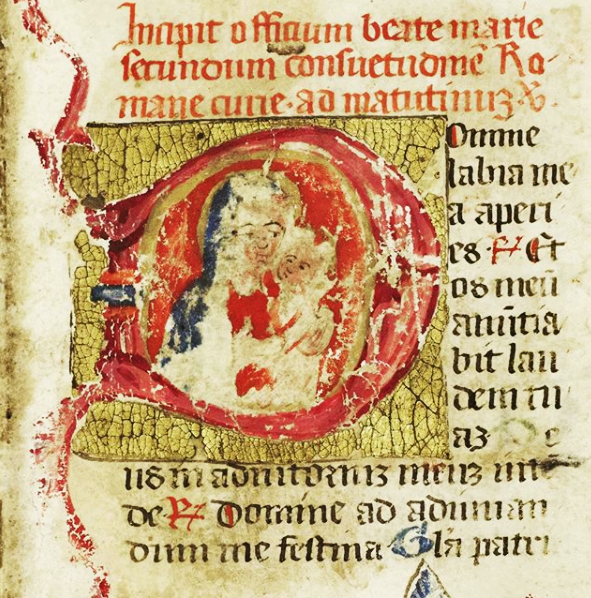 Incipit officium beate marie
secundum consuetudinē Ro-
mane curie· ad matutinuʒ ℣.
Domine
labia me
a aperi
es · ℟ Et
os meū
anūtia
bit lau
dem tu
aʒ D e
us in adiutoriuʒ meuʒ intē
de ℟ Domine ad adiuuan
dum me festina Gla patri